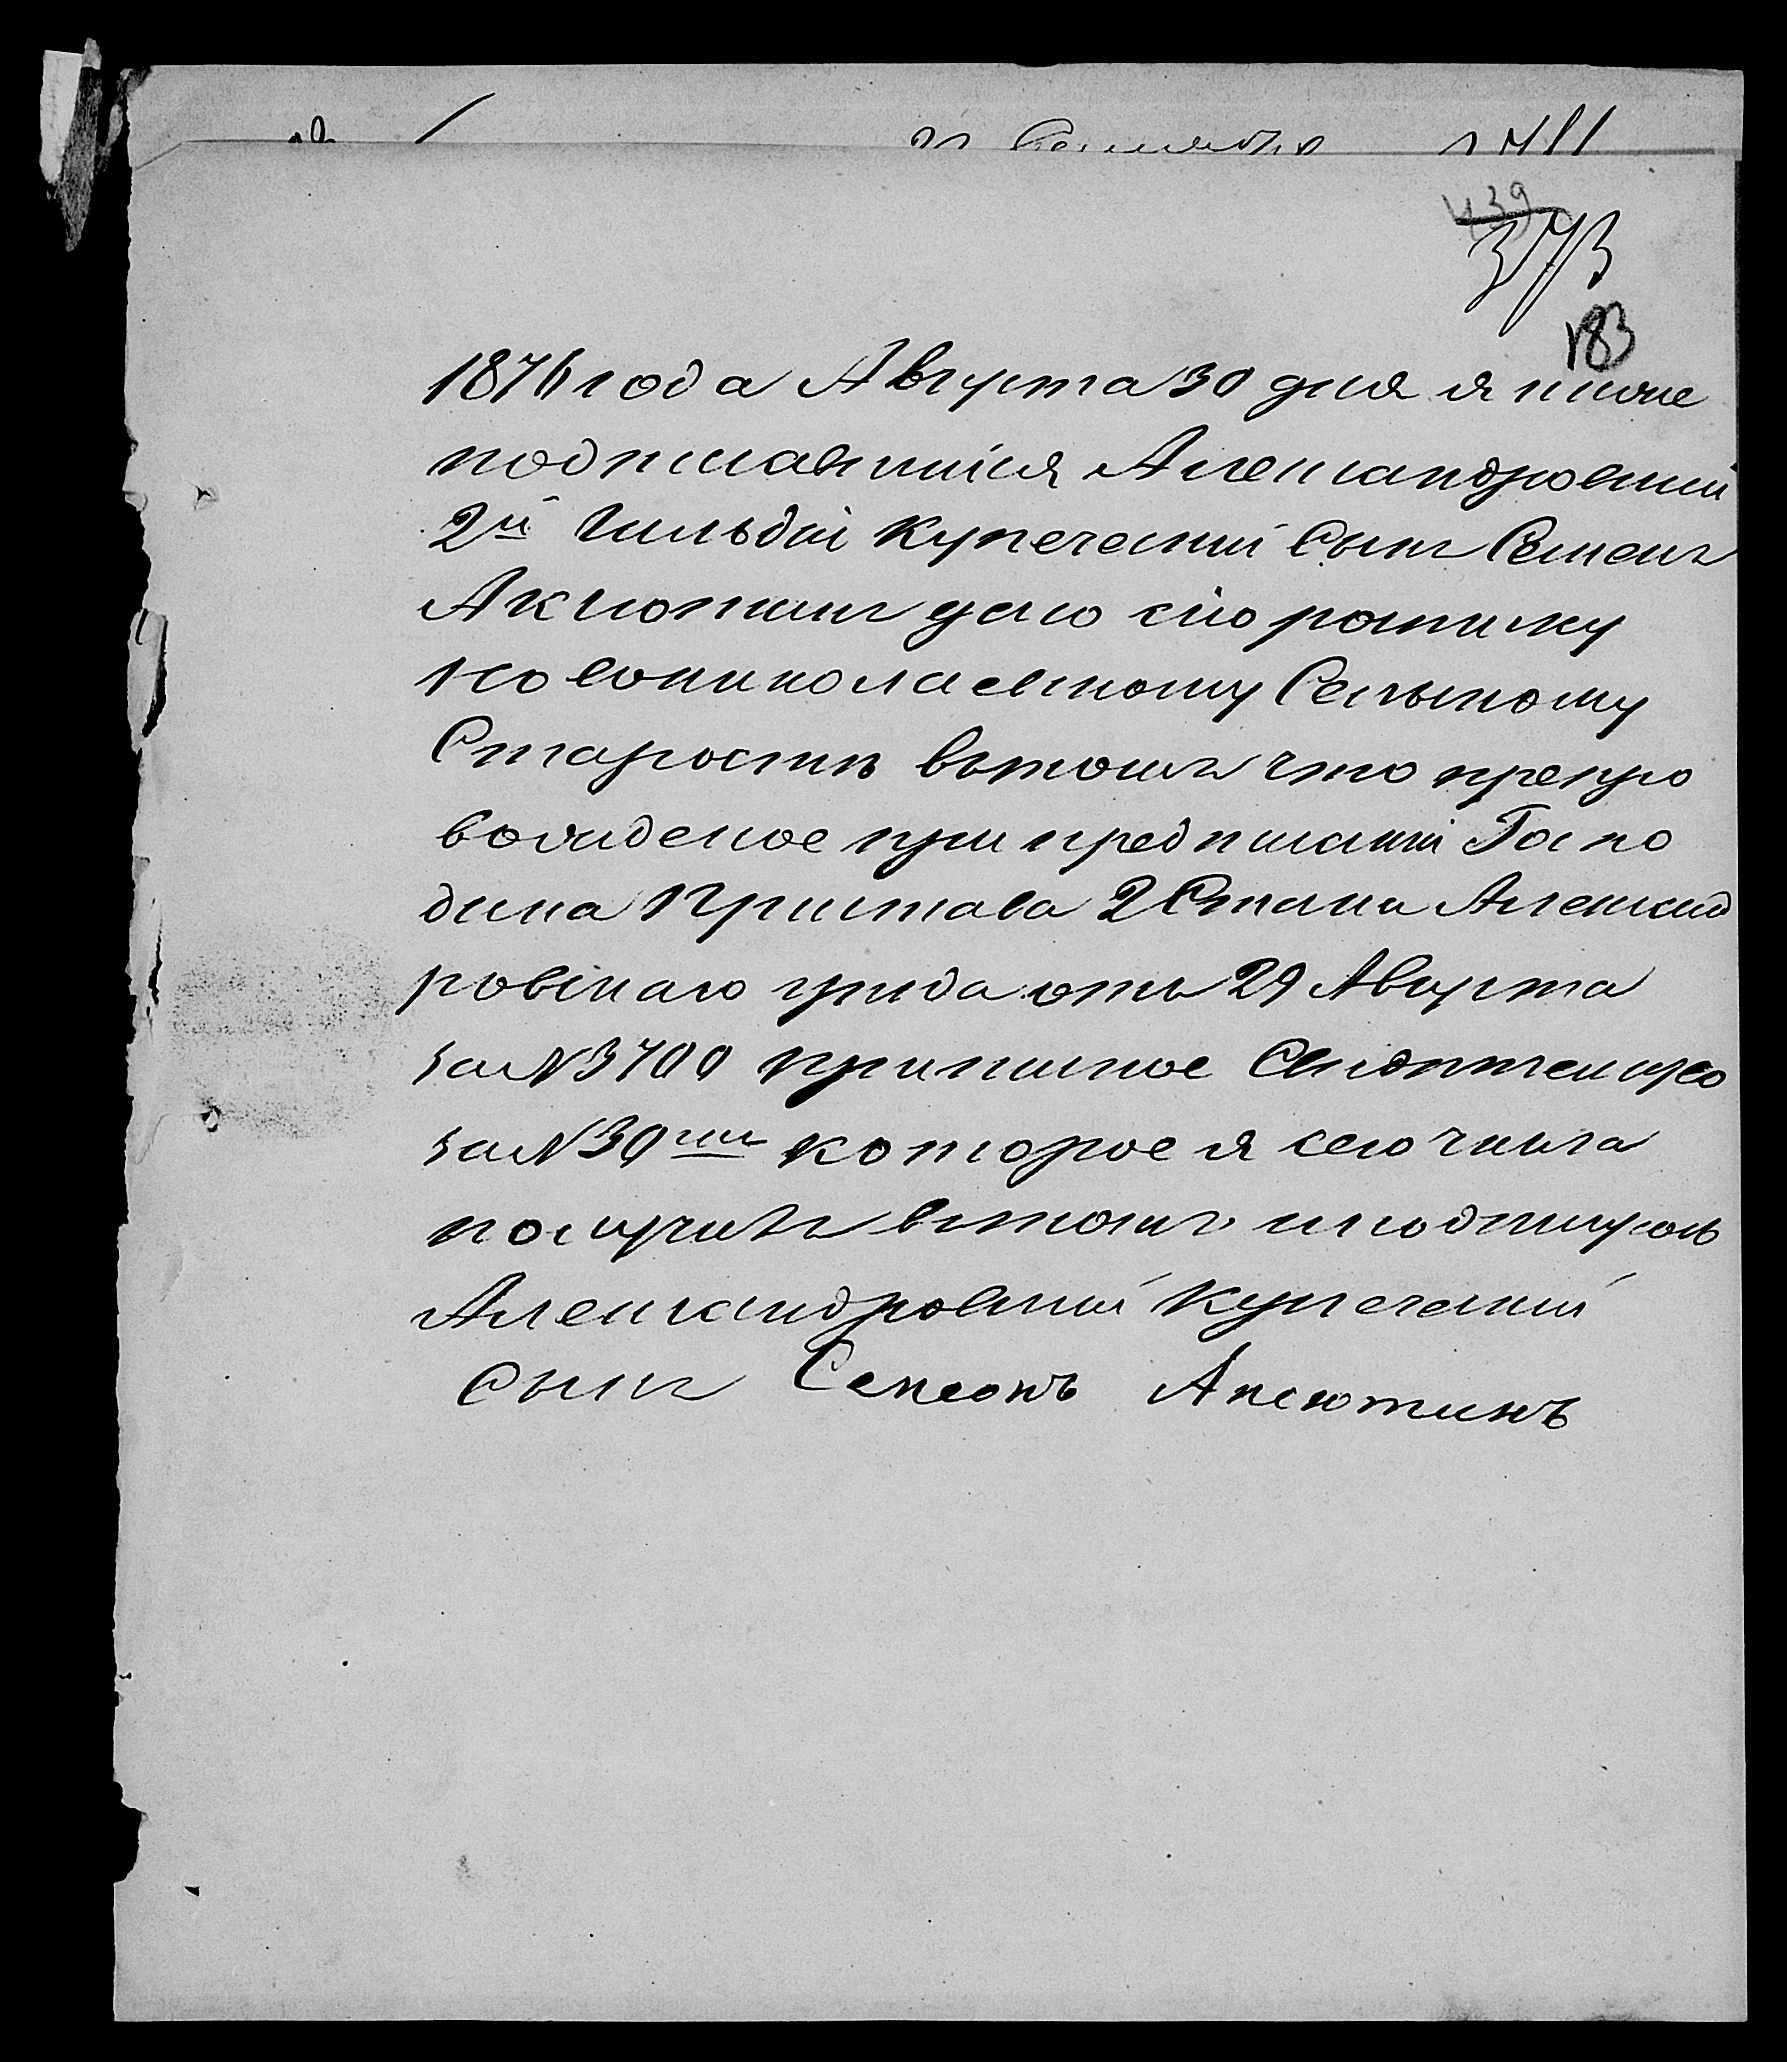 439
373
183
1876 года Августа 30 дня я ниже
подписавшийся Александровский
2й Гильдіи Купеческий Сынъ Семенъ
Аксютинъ даю сію росписку
Новониколаевскому Сельскому
Старостѣ вътомъ что препро
вожденое при предписаніи Госпо
дина Пристава 2 Стана Александ
ровскаго уезда отъ 29 Августа
за N 3700 приписное Свидѣтельство
за N 30мъ которое я сего числа
получилъ вътомъ и подписуюсь
Александровский Купеческий
Сынъ Семенъ Аксютинъ